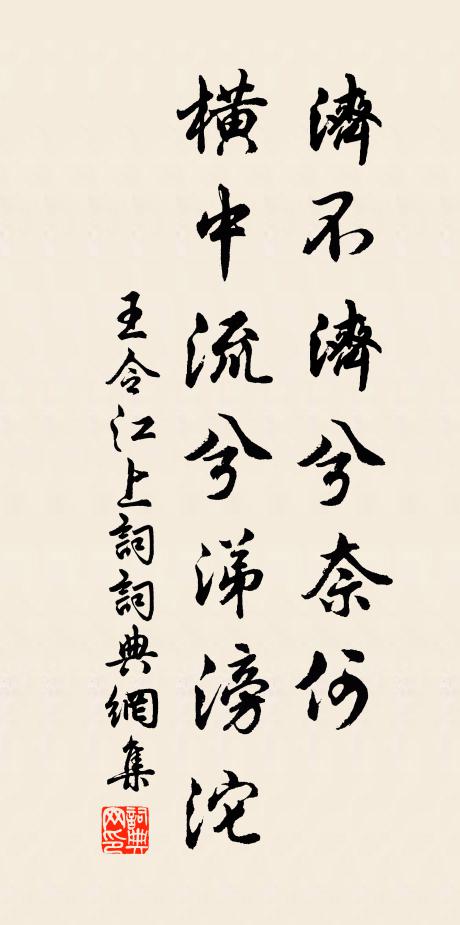 濟不濟兮奈何
橫中流兮涕滂沱
王令江上詞詞典網集
詞典網印